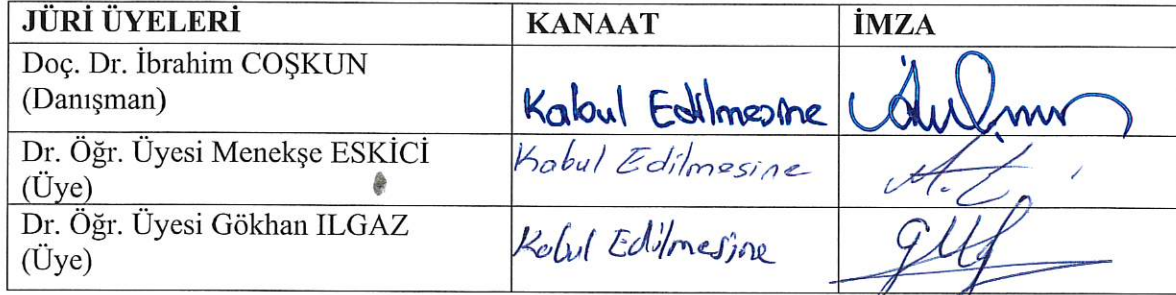 JÜRİ ÜYELERİ KANAAT İMZA
Doç. Dr. İbrahim COŞKUN
(Danışman) Kabul Edilmesine
Dr. Öğr. Üyesi Menekşe ESKİCİ Kabul Edilmesine
(Üye)
Dr. Öğr. Üyesi Gökhan ILGAZ Kabul Edilmesine
(Üye)